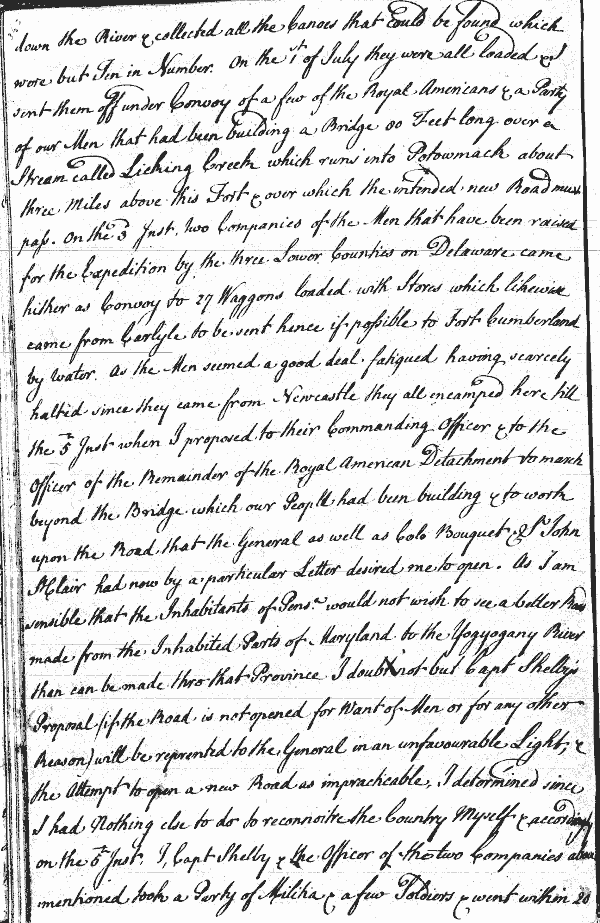 down the River & collected all the Canoes that could be found which
were but Ten in Number. On the 1st of July they were all loaded & I
sent them off under Convoy of a few of the Royal Americans & a Party
of our Men that had been building a Bridge 80 Feet long over a
Stream called Licking Creek which runs into Potowmack about
three Miles above this Fort & over which the intended new Road must
pass. On the 3 Inst. two Companies of the Men that have been raised
for the Expedition by the three Lower Counties on Delaware came
hither as Convoy to 27 Waggons loaded with Stores which likewise
came from Carlyle to be sent hence if possible to Fort Cumberland
by water. As the Men seemed a good deal fatigued having scarcely
halted since they came from Newcastle they all encamped here till
the 5th Inst when I proposed to their Commanding Officer & to the
Officer of the Remainder of the Royal American Detachment to march
beyond the Bridge which our People had been building & to work
upon the Road that the General as well as Colo Bouquet & Sr John
St Clair had now by a particular Letter desired me to open. As I am
sensible that the Inhabitants of Pensa would not wish to see a better Road
made from the Inhabited Parts of Maryland to the Yogyogany River
than can be made thro that Province I doubt not but Capt Shelbys
Proposal (if the Road is not opened for Want of Men or for any other
Reason) will be reprented to the General in an unfavourable Light, &
the Attempt to open a new Road as impracticable, I determined since
I had Nothing else to do to reconnoitre the Country Myself & accordingly
on the 6th Inst. I, Capt Shelby & the Officer of the two Companies above
mentioned took a Party of Militia & a few Soldiers & went within 20